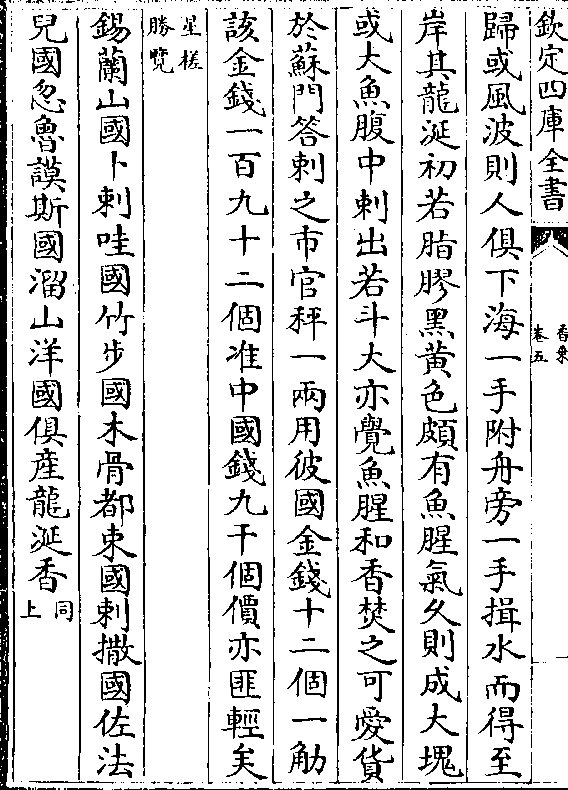 欽定四庫全書
香乗
卷五
歸或風波則人俱下海一手附舟旁一手揖水而得至
岸其龍涎初若脂膠黑黄色頗有魚腥氣久則成大塊
或大魚腹中刺出若斗大亦覺魚腥和香焚之可愛貨
於蘇門答剌之市官秤一兩用彼國金錢十二個一觔
該金錢一百九十二個准中國錢九千個價亦匪輕矣
星槎
勝覽
錫蘭山國卜剌哇國竹步國木骨都束國剌撒國佐法
兒國忽魯謨斯國溜山洋國俱産龍涎香
同
上